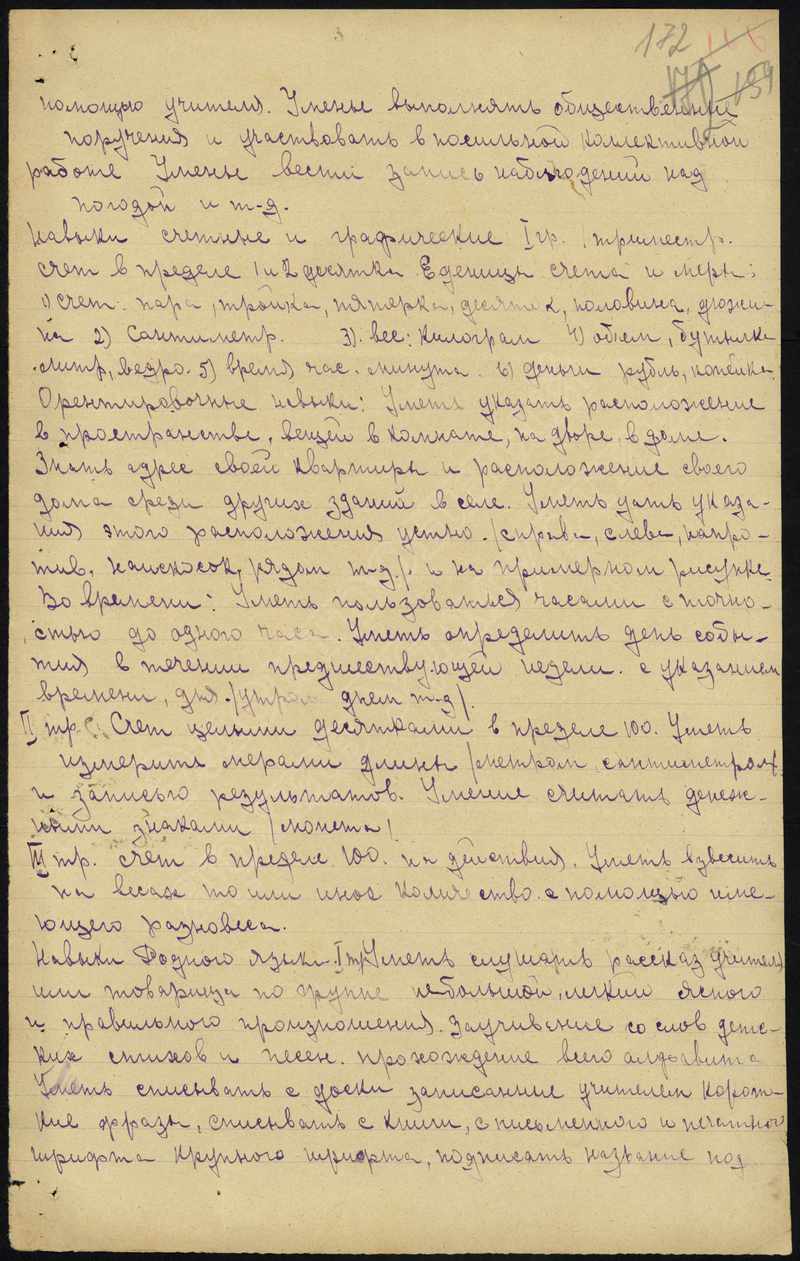 172 116
170 139
помощью учителя. Уменье выполнять общественные
поручения и участвовать в посильной коллективной
работе Уменье вести запись наблюдений над
погодой и т-д.
Навыки счетные и графические I гр. I триместр.
счет в пределе 1 и 2 десятка Еденицы счета и меры:
1) счет. пара, тройка, пятерка, десяток, половина, дюжи-
на 2) Сантиметр. 3). вес: килограм 4) обем, бутылка
литр, ведро. 5) время час. минута. 6) деньги рубль, копейка.
Орентировочные навыки: Уметь указать расположение
в пространстве, вещей в комнате, на дворе, в доме.
Знать адрес своей квартиры и расположение своего
дома среди других зданий в селе. Уметь дать указа-
ния этого расположения устно. /справа, слева, напро-
тив, наискосок, рядом т-д./. и на примерном рисунке.
Во времени: Уметь пользоваться часами с точно-
стью до одного часа. Уметь определить день собы-
тия в течении предшествующей недели. с указанием
времени, дня /утром днем т-д/.
II тр. Счет целыми десятками в пределе 100. Уметь
измерить мерами длины /метром, сантиметром/
и записью результатов. Умение считать денеж-
ными знаками /монета/
III тр. счет в пределе 100. на действия. Уметь взвесить
на весах то или иное количество с помощью име-
ющего разновеса.
Навыки Родного языка. I тр Уметь слушать рассказ учителя
или товарища по группе небольшой, легкий ясного
и правильного произношения. Заучивание со слов детс-
ких стихов и песен. прохождение всего алфавита
Уметь списывать с доски записанные учителем корот-
кие фразы, списывать с книги, с письменного и печатного
шрифта крупного шрифта, подписать название под